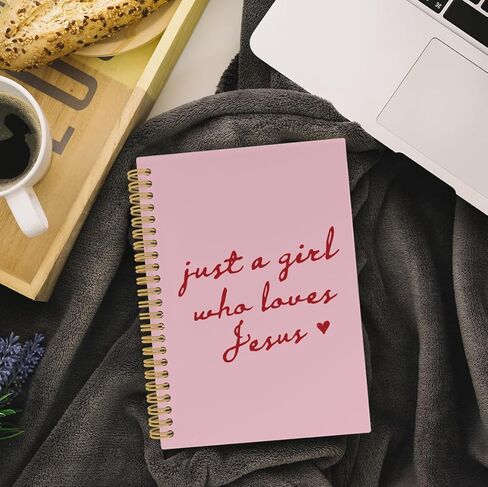 just a girl
who loves
Jesus ♥